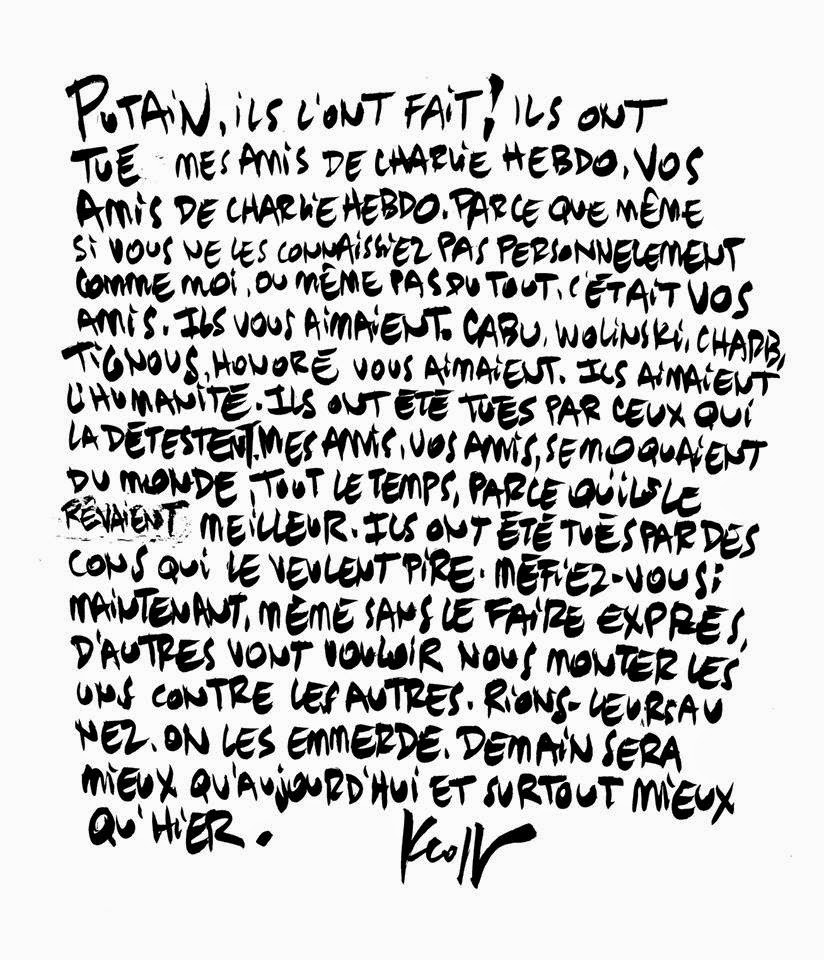 PUTAIN, ILS L'ONT FAIT! ILS ONT
TUÉ MES AMIS DE CHARLIE HEBDO, VOS
AMIS DE CHARLIE HEBDO. PARCE QUE MÊME
SI VOUS NE LES CONNAISSIEZ PAS PERSONNELEMENT
COMME MOI, OU MÊME PAS DU TOUT, C'ÉTAIT VOS
AMIS. ILS VOUS AIMAIENT. CABU, WOLINSKI, CHARB,
TIGNOUS, HONORÉ VOUS AIMAIENT. ILS AIMAIENT
L'HUMANITÉ. ILS ONT ÉTÉ TUÉS PAR CEUX QUI
LA DÉTESTENT. MES AMIS, VOS AMIS, SE MOQUAIENT
DU MONDE, TOUT LE TEMPS, PARCE QU'ILS LE
RÊVAIENT MEILLEUR. ILS ONT ÉTÉ TUÉS PAR DES
CONS QUI LE VEULENT PIRE. MÉFIEZ-VOUS SI
MAINTENANT, MÊME SANS LE FAIRE EXPRÈS,
D'AUTRES VONT VOULOIR NOUS MONTER LES
UNS CONTRE LES AUTRES. RIONS-LEURS AU
NEZ. ON LES EMMERDE. DEMAIN SERA
MIEUX QU'AUJOURD'HUI ET SURTOUT MIEUX
QU'HIER.
Kroll